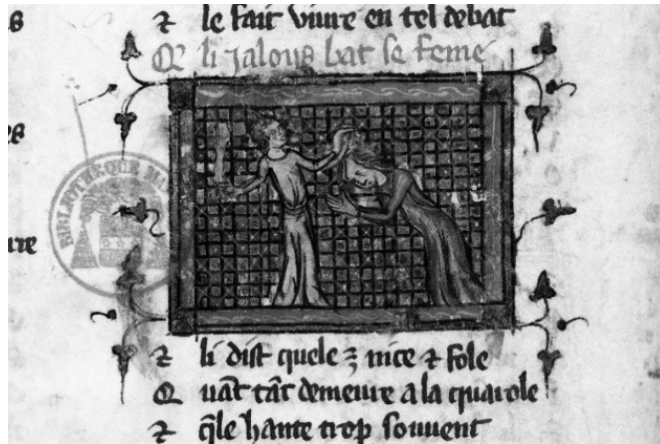 ⁊ le fait viure en tel debat
Q͛ li jalous bat se feme
BIBLIOTHÈQUE
⁊ li dist quele ꝫ nice ⁊ fole
Q uāt tāt demeure a la quarole
⁊ q̄le hante trop souuent